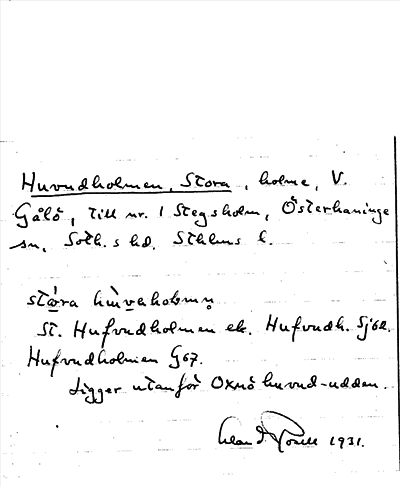 Huvudholmen, Stora, holme, V.
Gålö, till nr. 1 Stegsholm, Österhaninge
sn, Soth.s hd. Sthlms l.
stœ̄ra hɯ̀vɐhobmn̥
St. Hufvudholmen ek. Hufvudh. Sj62.
Hufvudholmen G67.
Ligger utanför Oxnö huvud-udden.
1931.